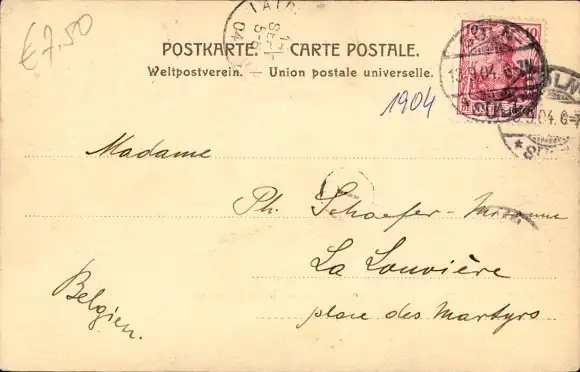 €7,50
POSTKARTE. — CARTE POSTALE.
Weltpostverein. — Union postale universelle.
1904
Madame
Ph. Schaefer-
La Louvière
place des Martyrs
Belgien.